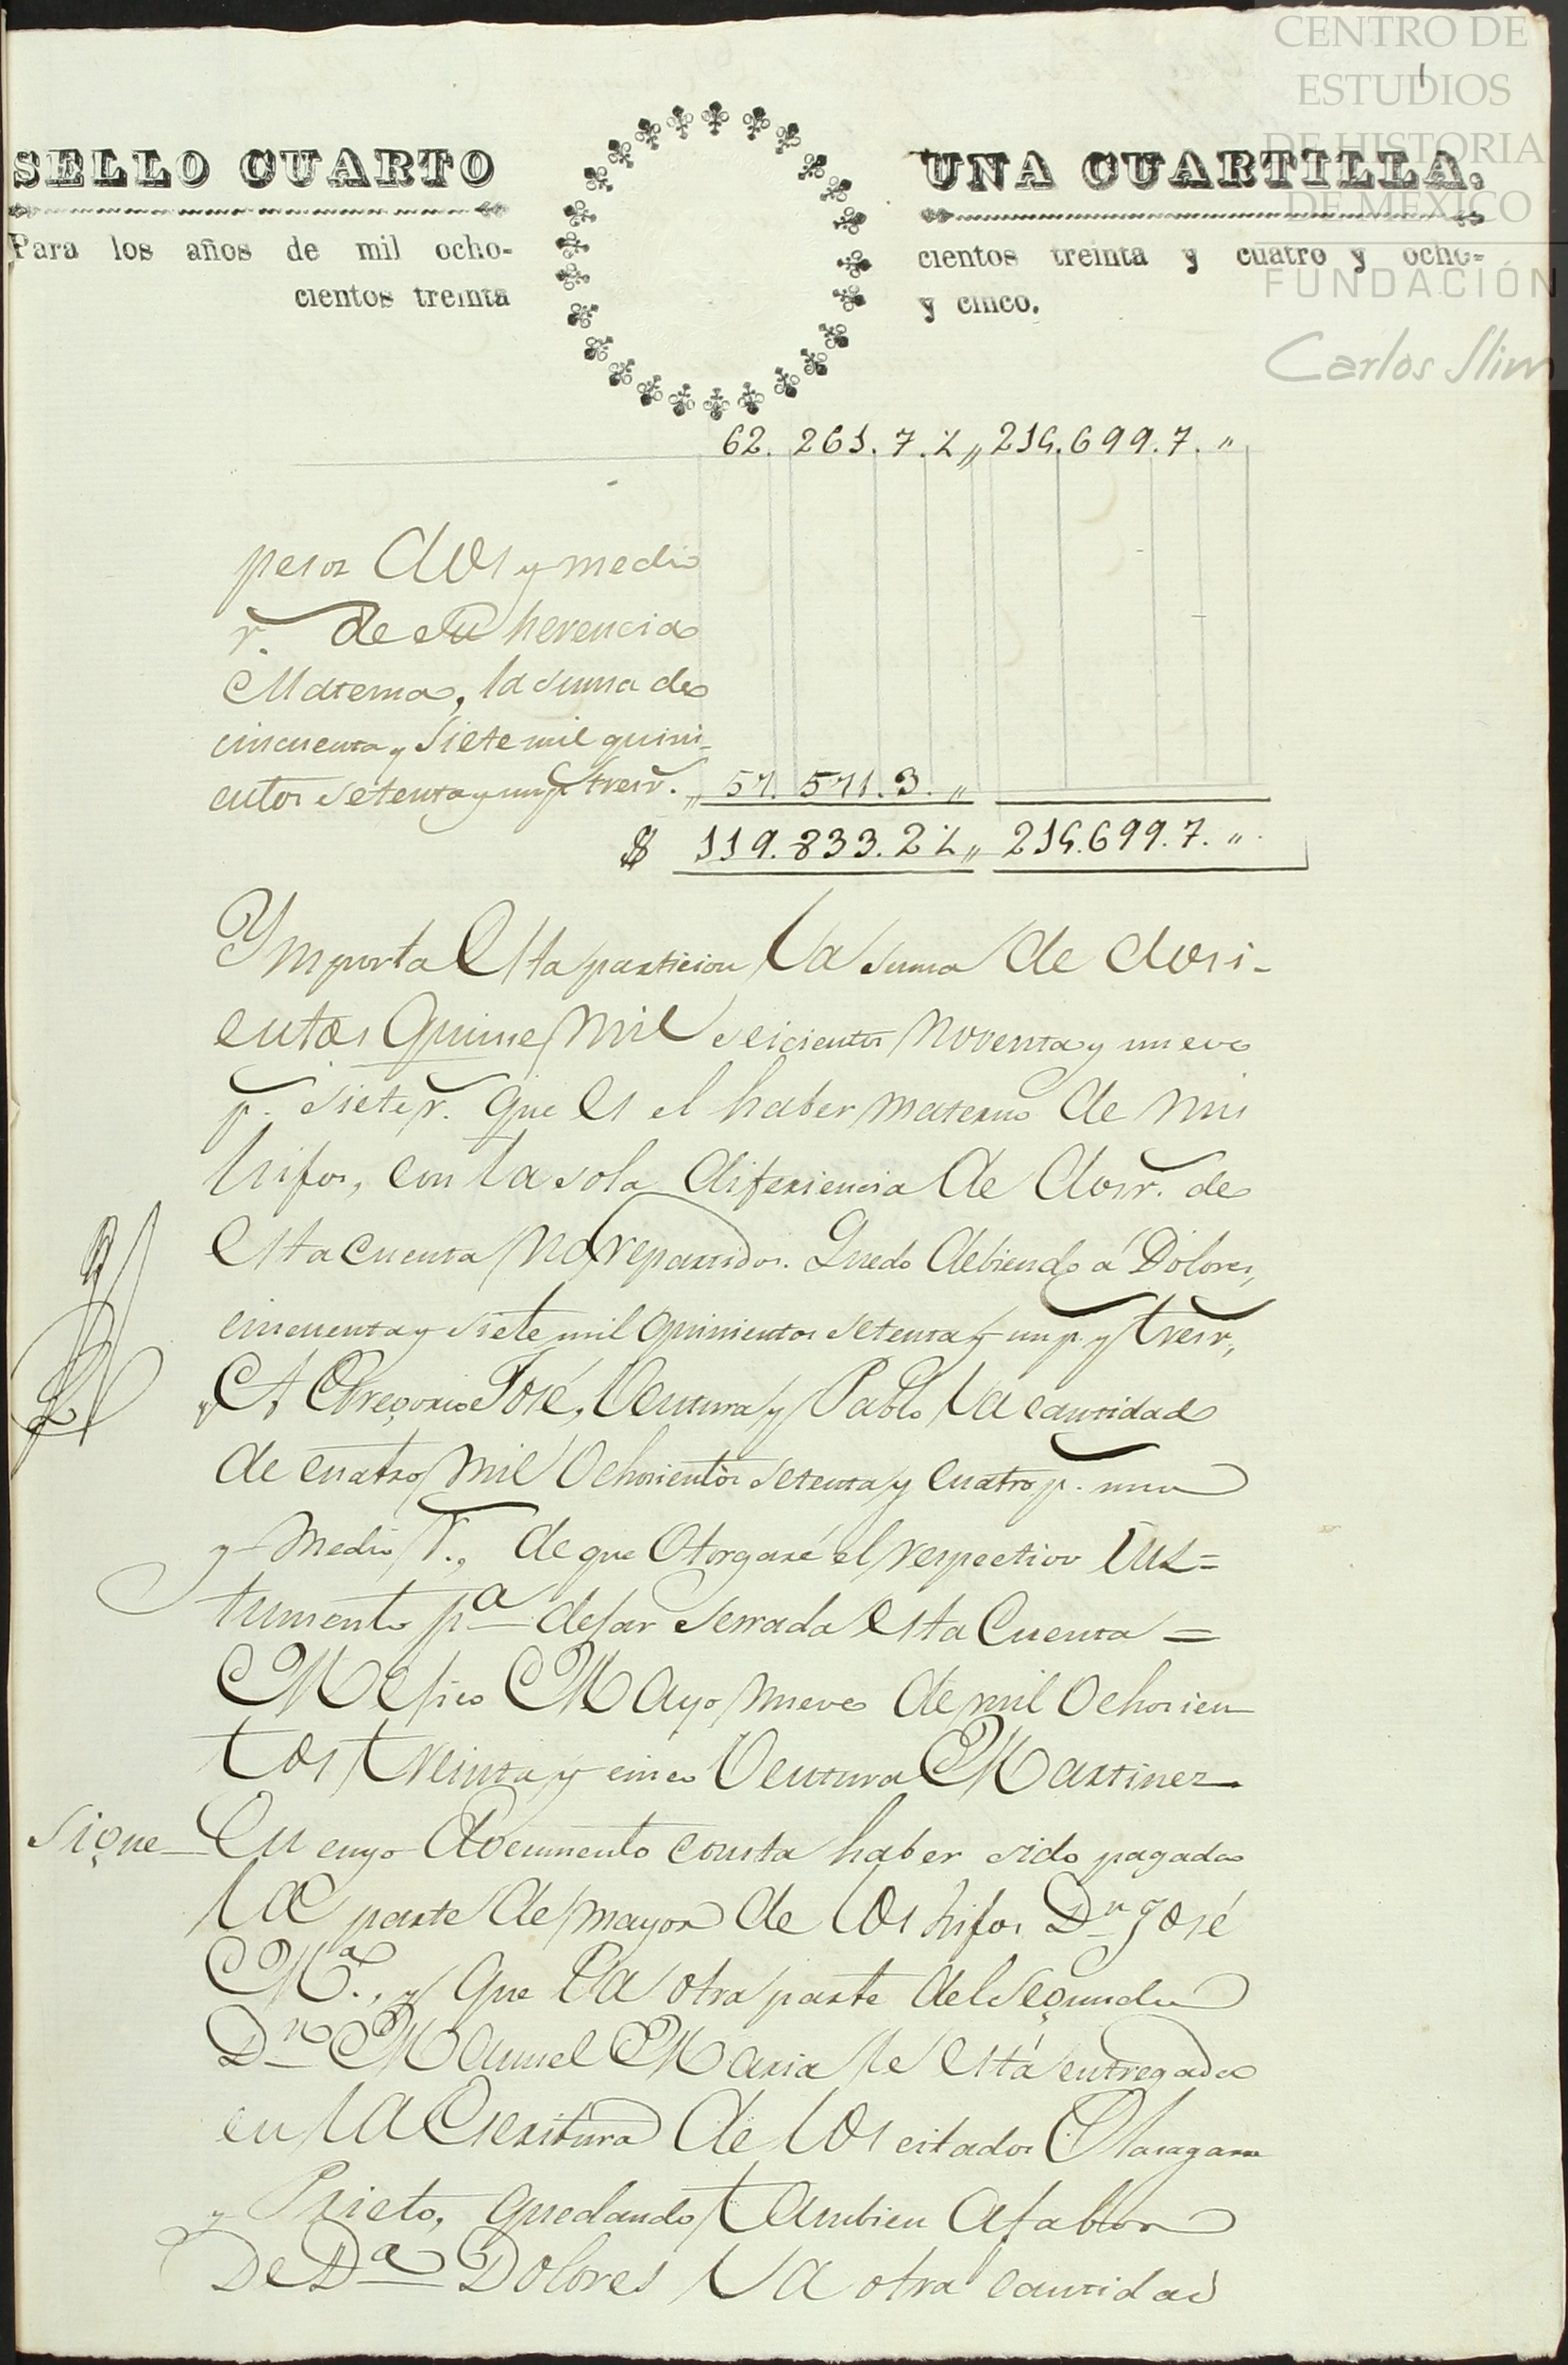 CENTRO DE
ESTUDIOS
DE HISTORIA
DE MÉXICO
FUNDACIÓN
Carlos Slim
SELLO CUARTO UNA CUARTILLA.
Para los años de mil ocho- cientos treinta y cuatro y ocho-
cientos treinta y cinco.
62. 261. 7. ½ ,, 215.699.7. "
pesos dos y medio
r.̃ de su herencia
Materna, la suma de
cincuenta y siete mil quini-
entos setenta y un p.̃ tres r.̃ ,, 57. 571. 3. "
$ 119. 833. 2 ½ ,, 215.699.7. "
Ymporta esta particion la suma de dosci-
entos quinse mil seicientos noventa y nueve
p.̃ siete r.̃ que es el haber materno de mis
hijos, con la sola diferiencia de dos r.̃ de
esta cuenta no repartidos. Quedo debiendo á Dolores,
cincuenta y siete mil quinientos setenta y un p.̃ y tres r.̃,
y A Gregorio José, Ventura y Pablo la cantidad
de cuatro mil Ochosientos setenta y cuatro p.̃ uno
y medio r., de que Otorgaré el respectivo Ins=
trumento pª dejar serrada esta Cuenta =
Mejico Mayo nueve de mil Ochosien
tos treinta y cinco Ventura Martinez.
Sigue En cuyo documento consta haber sido pagada
la parte de mayor de los hijos Dn José
Mª., y que la otra parte del segundo
Dn Manuel Maria le está entregada
en la Escritura de los citados Olasagarre
y Prieto, quedando tambien afabor
De Dª Dolores la otra cantidad